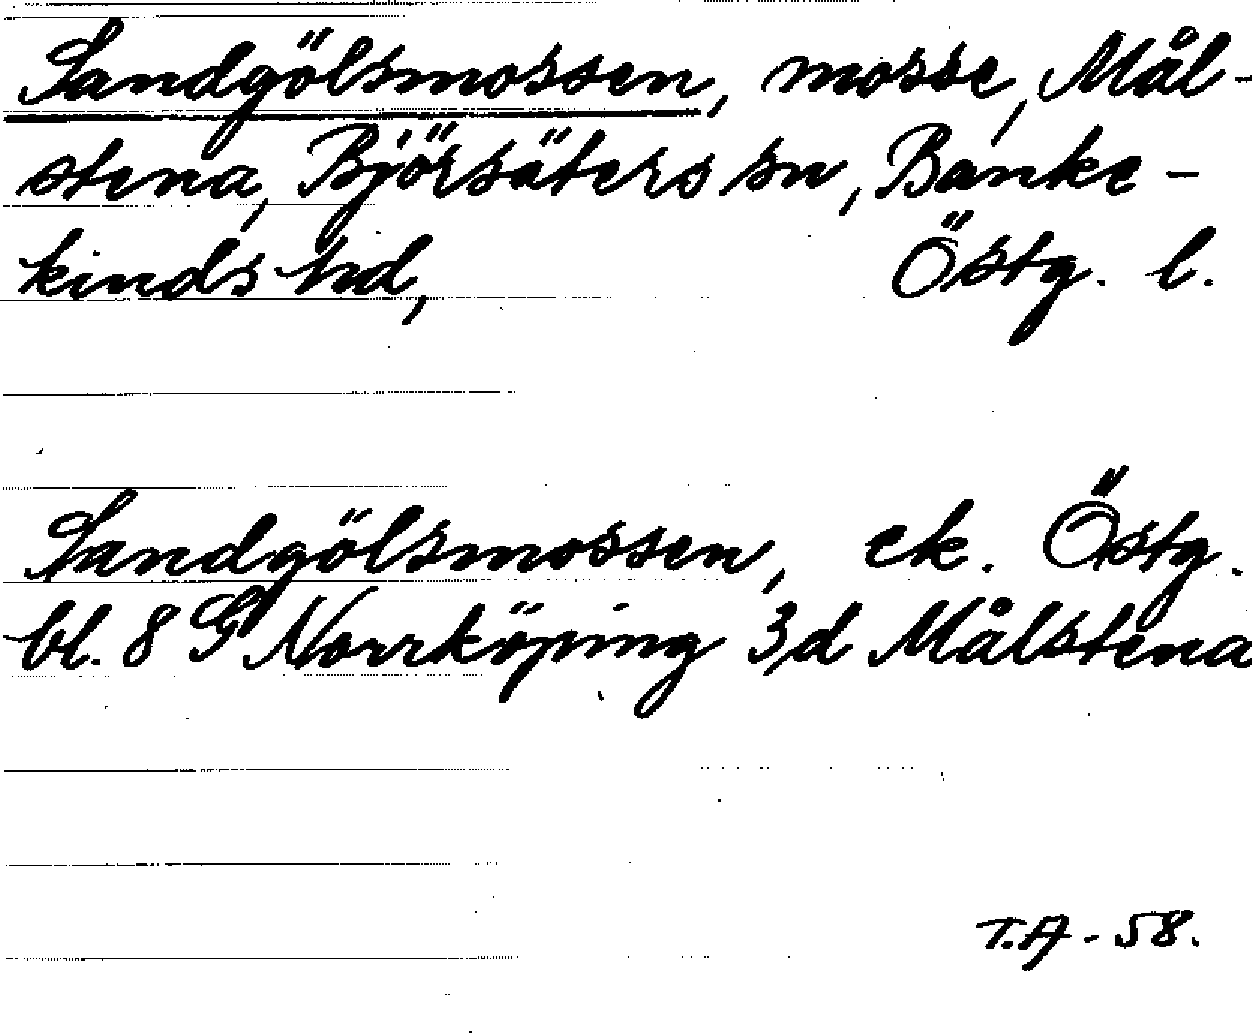 Sandgölsmossen, mosse, Mål-
stena, Björsäters sn, Banke-
kinds hd, Östg. l.
Sandgölsmossen, ek. Östg.
bl. 8 G Norrköping 3d Målstena
T.A - 58.